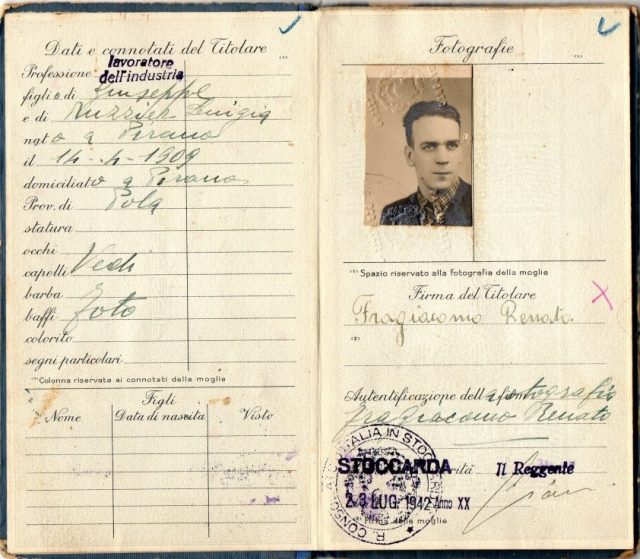 Dati e connotati del Titolare
(1)
Professione lavoratore dell'industria
figlio di Giuseppe
e di Ruzzier Luigia
nato a Pirano
il 14-4-1909
domiciliato a Pirano
Prov. di Pola
statura
occhi
capelli Vedi
barba
baffi foto
colorito
segni particolari
(1) Colonna riservata ai connotati della moglie
Figli
Nome Data di nascita Visto
Fotografie
(2)
(2) Spazio riservato alla fotografia della moglie
Firma del Titolare
Fragiacomo Renato
(2)
Autentificazione della fotografia
Fragiacomo Renato
STOCCARDA
Il Reggente
23 LUG. 1942 Anno XX
Firma della moglie